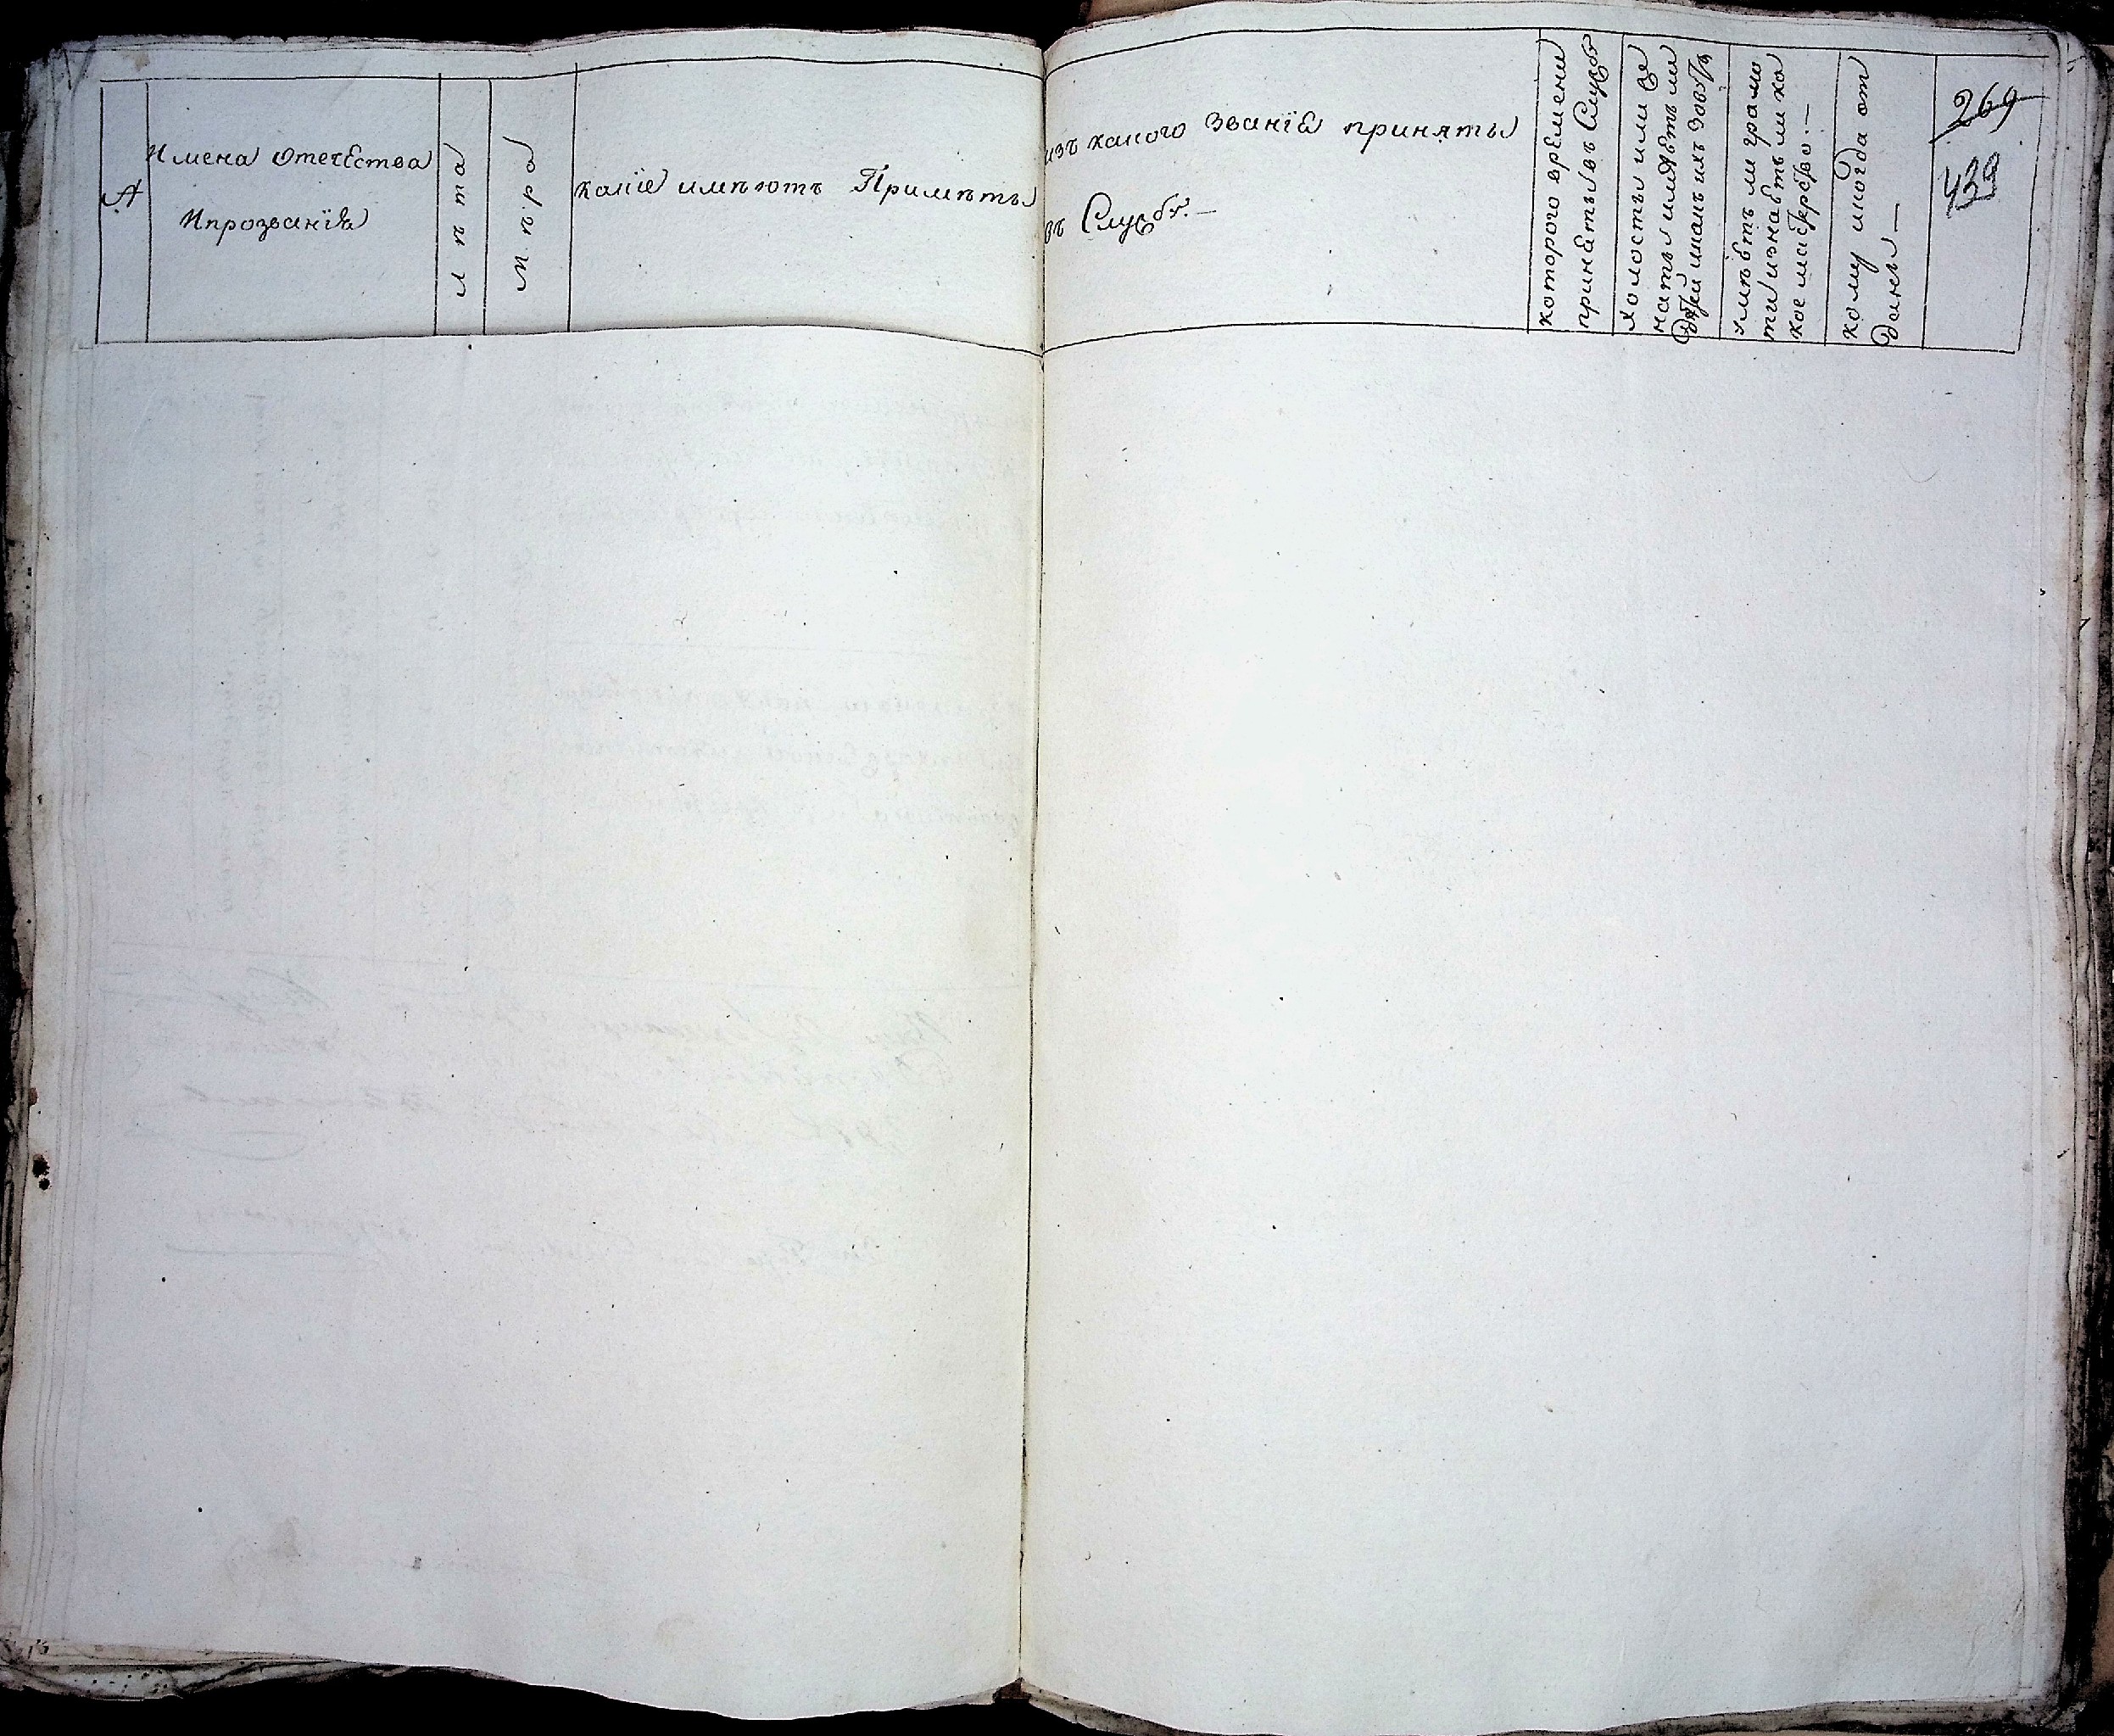 №
Имена Отечества
Ипрозванія
лѣта
мѣра
каліе имѣютъ Примѣты
изъ какого Званіе приняты
въ Службу.—
которого времени
принеты въ Службу
холосты или же
наты имѣетъ ли
детей и какъ ихъ зовутъ
умѣетъ ли грамо
ти и знаетъ ли ка
кое мастерство.—
кому и когда от
даны —
269
439